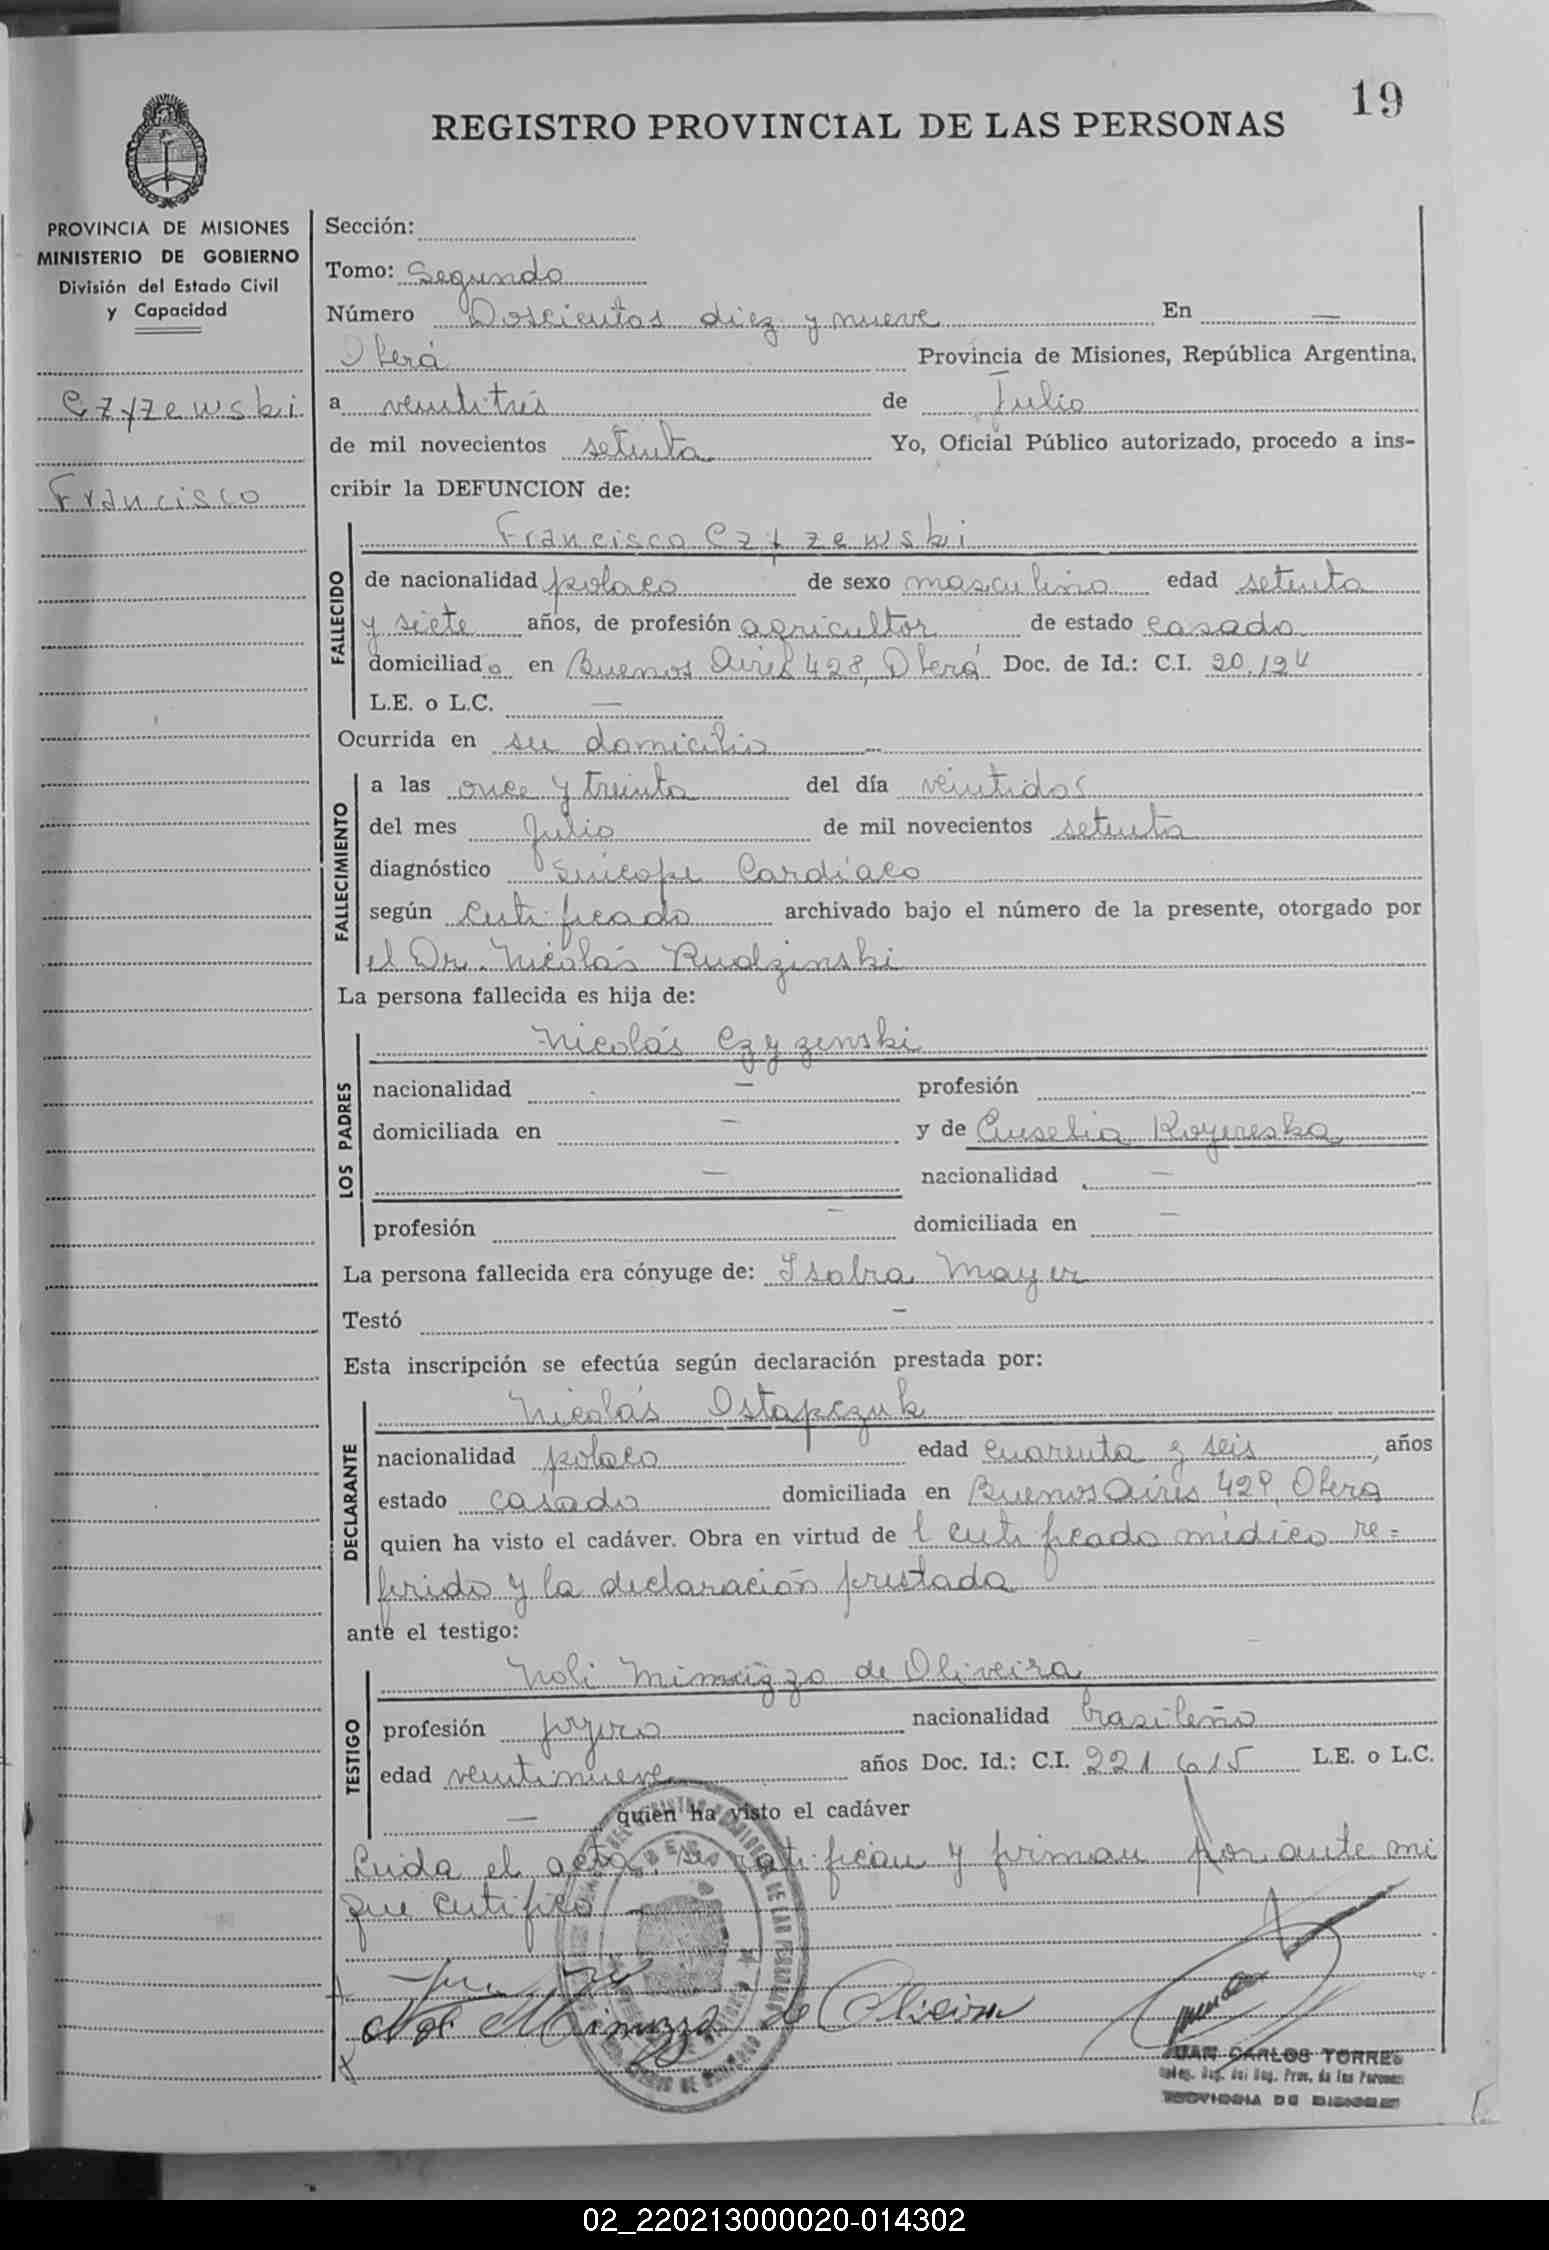 19
REGISTRO PROVINCIAL DE LAS PERSONAS
PROVINCIA DE MISIONES
MINISTERIO DE GOBIERNO
División del Estado Civil
y Capacidad
Czyzewski
Francisco
Sección:
Tomo: Segundo
Número Doscientos diez y nueve En —
Oberá Provincia de Misiones, República Argentina,
a veintitrés de Julio
de mil novecientos setenta Yo, Oficial Público autorizado, procedo a ins-
cribir la DEFUNCION de:
Francisco Czyzewski
FALLECIDO
de nacionalidad polaco de sexo masculino edad setenta
y siete años, de profesión agricultor de estado casado
domiciliado en Buenos Aires 428, Oberá Doc. de Id.: C.I. 20.124
L.E. o L.C. —
Ocurrida en su domicilio
FALLECIMIENTO
a las once y treinta del día veintidos
del mes Julio de mil novecientos setenta
diagnóstico Sincope Cardíaco
según certificado archivado bajo el número de la presente, otorgado por
el Dr. Nicolás Rudzinski
La persona fallecida es hija de:
LOS PADRES
Nicolás Czyzenski
nacionalidad — profesión
domiciliada en — y de
— nacionalidad —
profesión — domiciliada en —
La persona fallecida era cónyuge de: Mayer
Testó —
Esta inscripción se efectúa según declaración prestada por:
DECLARANTE
Nicolás Ostapczuk
nacionalidad polaco edad cuarenta y seis, años
estado casado domiciliada en Buenos Aires 428, Obera
quien ha visto el cadáver. Obra en virtud de l certificado médico re=
ferido y la declaración prestada
ante el testigo:
TESTIGO
Noli Minuzzo de Oliveira
profesión joyero nacionalidad brasileño
edad veintinueve años Doc. Id.: C.I. 221.615 L.E. o L.C.
— quien ha visto el cadáver
Leida el acta, la ratifican y firman por ante mi
que certifico —
Noli Minuzzo de Oliveira
JUAN CARLOS TORRES
PROVINCIA DE MISIONES
02_220213000020-014302